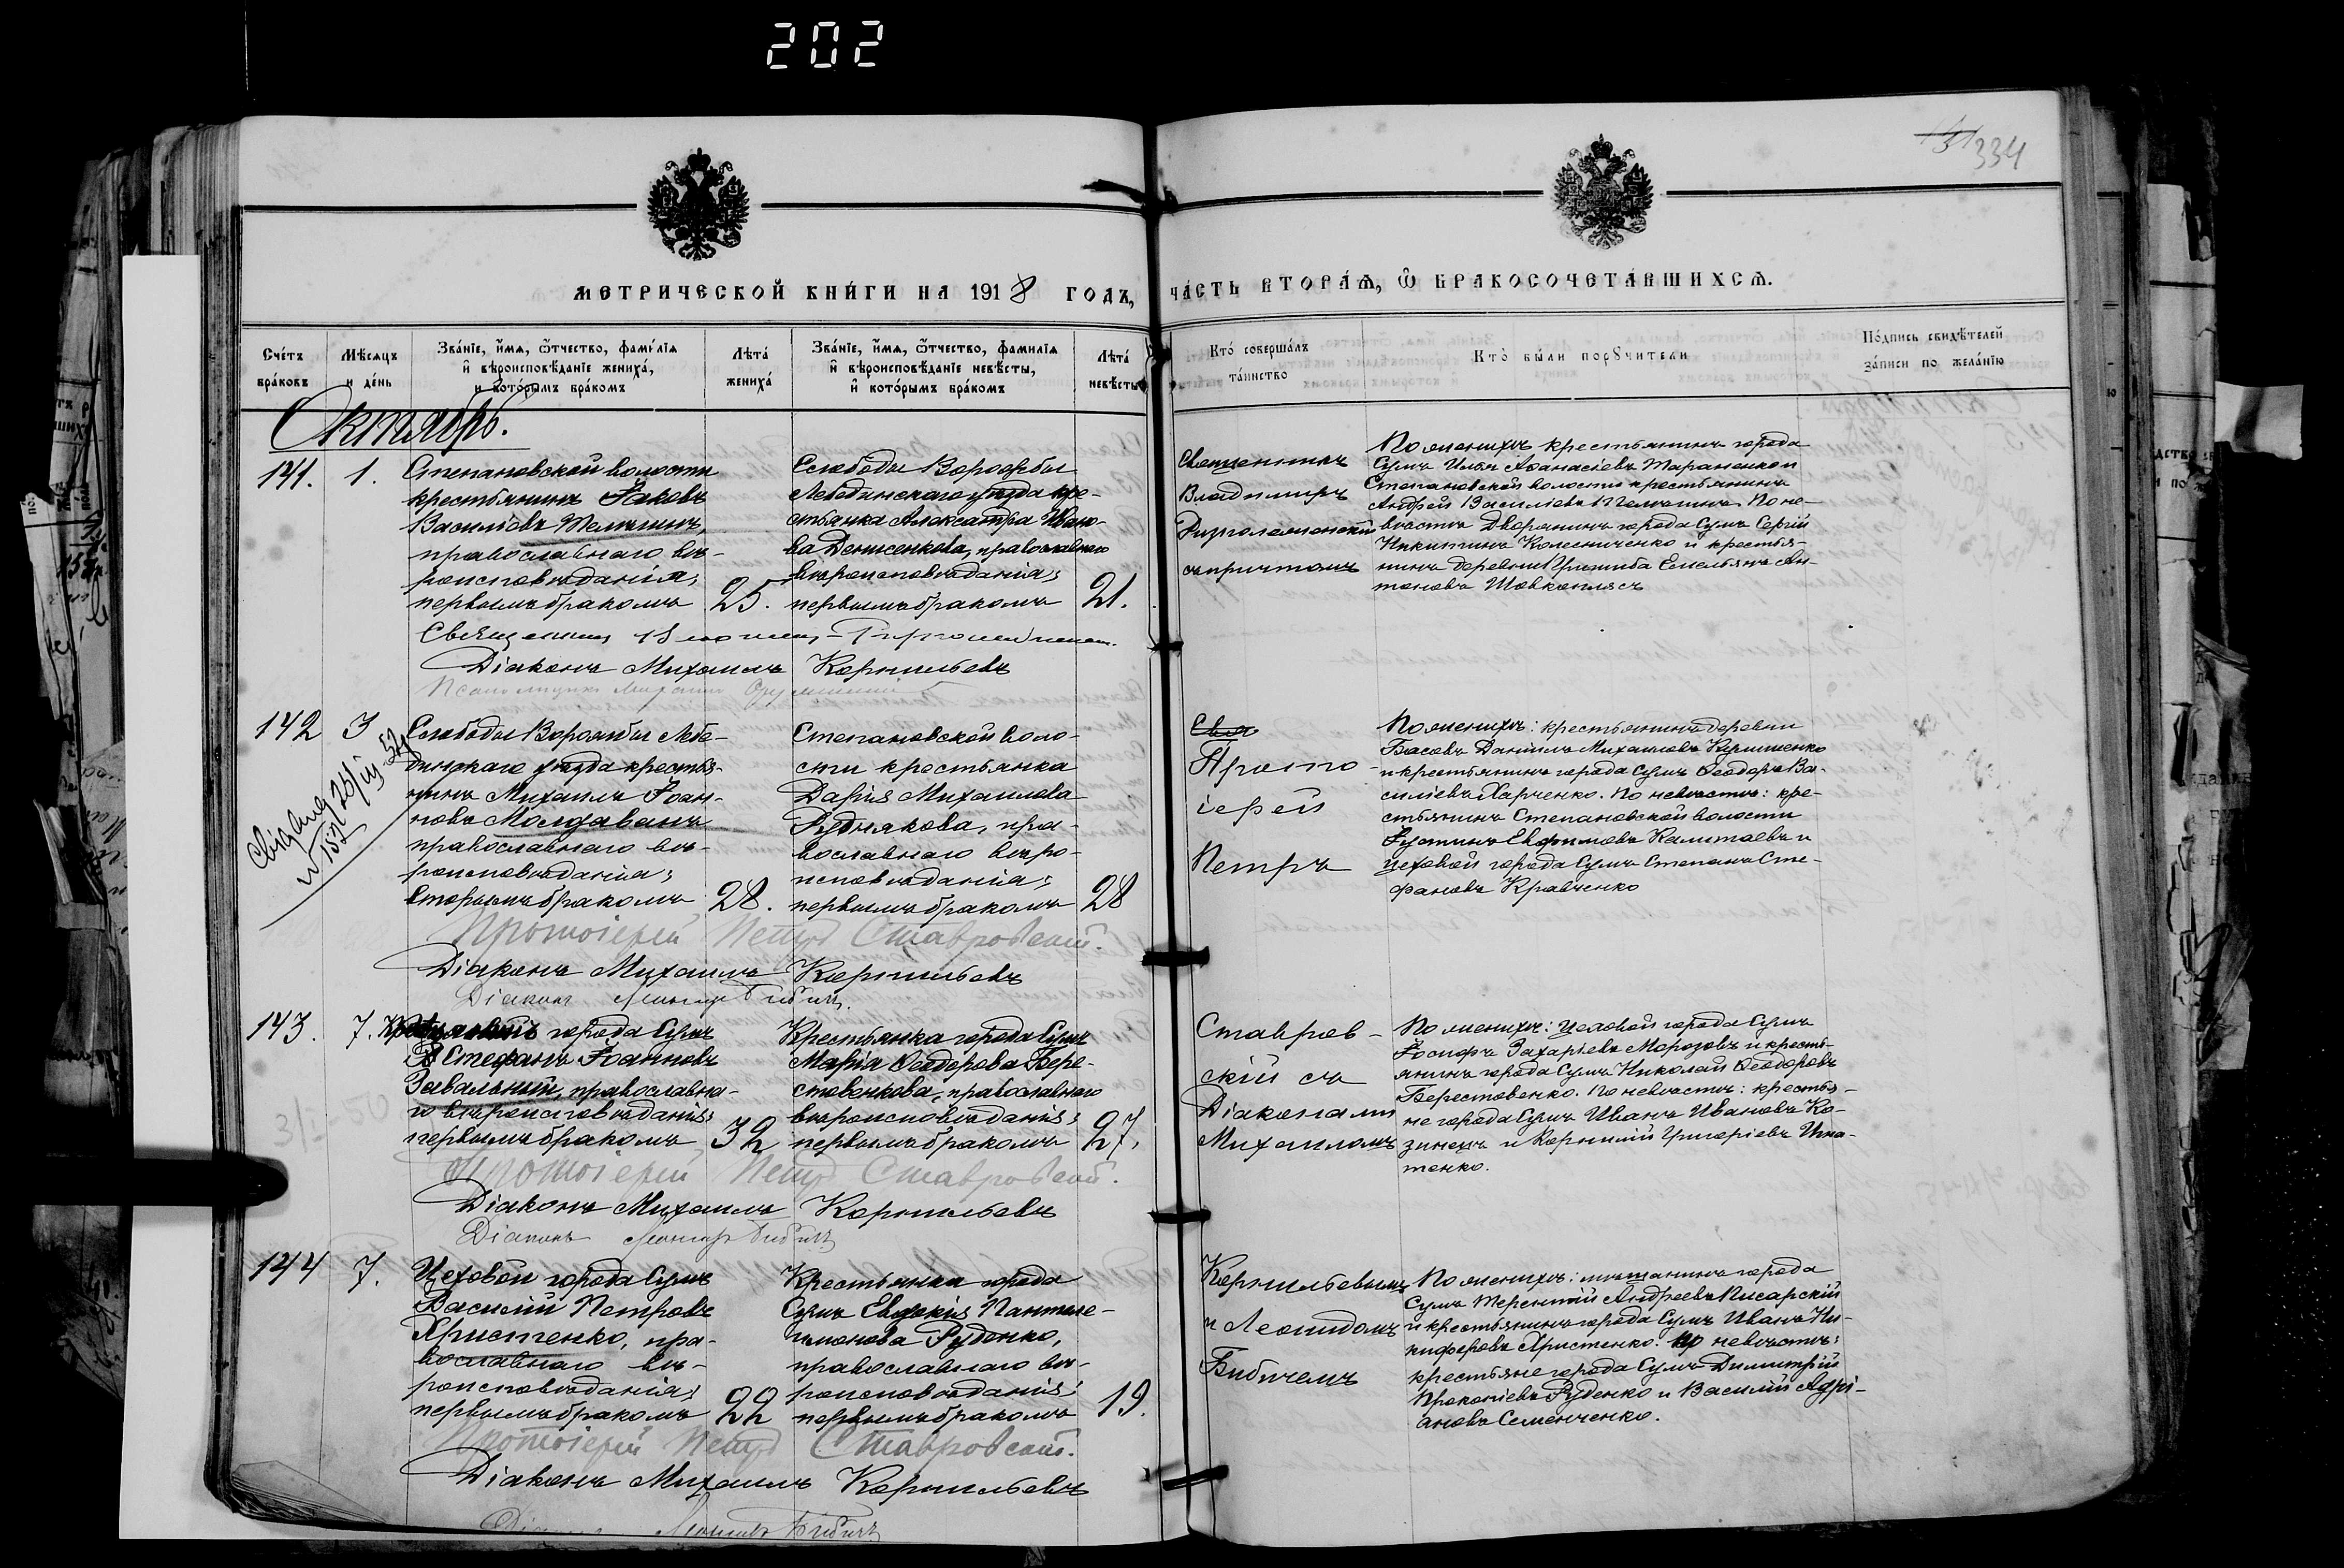 202
334
МЕТРИЧЕСКОЙ КНИ́ГИ НА 1918 ГОДЪ,
ЧА́СТЬ ВТОРА́Ѧ, Ѽ БРАКОСОЧЕТА́ВШИХСѦ.
Сче́тъ
бра́ковъ
Мѣ́сяцъ
и де́нь
Зва́нїе, и҆́мя, ѻ҆́тчество, фами́лїя
и҆ вѣроисповѣ́данїе жениха́,
и кото́рымъ бра́комъ
Лѣта́
жениха́
Зва́нїе, и҆́мя, ѻ҆́тчество, фамилїя
и҆ вѣроисповѣ́данїе невѣ́сты,
и҆ кото́рымъ бра́комъ
Лѣта́
невѣ́сты
Кто̀ соверша́лъ
та́инство
Кто̀ бы́ли порꙋчители
По́дпись свидѣ́телей
за́писи по жела́нїю
Октябрь.
141. 1.
Степановской волости
крестьянинъ Іаковъ
Василіевъ
православнаго вѣ-
роисповѣданія;
первымъ бракомъ
25.
Слободы Ворожбы
Лебединскаго уѣзда кре-
стьянка Александра Ивано-
ва Денисенкова, православнаго
вѣроисповѣданія;
первымъ бракомъ
21.
Священникъ
Владимиръ
съ причтомъ
По женихѣ крестьянинъ города
Сумъ Илья Аѳанасіевъ Тараненко и
Степановской волости крестьянинъ
Андрей Василіевъ По не-
вѣстѣ Дворянинъ города Сумъ Сергій
Никитинъ Колесниченко и крестья-
нинъ деревни Емельянъ Ан-
тоновъ Шовкоплясъ
Священникъ
Діаконъ Михаилъ Корнильевъ
Псаломщикъ Михаилъ
142 3
Слободы Ворожбы Лебе-
динскаго уѣзда крестья-
нинъ Михаилъ Іоан-
новъ Молдаванъ
православнаго вѣ-
роисповѣданія;
вторымъ бракомъ
28.
Степановской воло-
сти крестьянка
Дарія Михаилова
Руднякова, пра-
вославнаго вѣро-
исповѣданія;
первымъ бракомъ
28
Свя
Прото-
іерей
Петръ
По женихѣ: крестьянинъ деревни
Басовъ Даніилъ Михаиловъ
и крестьянинъ города Сумъ Ѳеодоръ Ва-
силіевъ Харченко. По невѣстѣ: кре-
стьянинъ Степановской волости
Іустинъ Евфимовъ и
цеховой города Сумъ Степанъ Сте-
фановъ Кравченко
Протоіерей Петръ Ставровскій.
Діаконъ Михаилъ Корнильевъ
Діаконъ Леонидъ Бибичъ.
143. 7.
города Сумъ
Стефанъ Іоанновъ
Завальный, православна-
го вѣроисповѣданія;
первымъ бракомъ
32
Крестьянка города Сумъ
Марія Ѳеодорова Бере-
стовенкова, православнаго
вѣроисповѣданія;
первымъ бракомъ
27.
Ставров-
скій съ
Діаконами
Михаиломъ
По женихѣ: цеховой города Сумъ
Іосифъ Захаріевъ Морозовъ и кресть-
янинъ города Сумъ Николай Ѳеодоровъ
Берестовенко. По невѣстѣ: крестья-
не города Сумъ Иванъ Ивановъ Ко-
зинецъ и Корнилій Григоріевъ Игна-
тенко.
Протоіерей Петръ Ставровскій.
Діаконъ Михаилъ Корнильевъ
Діаконъ Леонидъ Бибичъ
144 7.
Цеховой города Сумъ
Василій Петровъ
Христенко, пра-
вославнаго вѣ-
роисповѣданія;
первымъ бракомъ
22
Крестьянка города
Сумъ Евдокія Пантеле-
имонова Руденко,
православнаго вѣ-
роисповѣданія;
первымъ бракомъ
19.
Корнильевымъ
и Леонидомъ
Бибичемъ
По женихѣ: мѣщанинъ города
Сумъ Терентій Андреевъ Писарскій
и крестьянинъ города Сумъ Иванъ Ни-
кифоровъ Христенко. По невѣстѣ:
крестьяне города Сумъ Димитрій
Прокопіевъ Руденко и Василій Адрі-
ановъ Семенченко.
Протоіерей Петръ Ставровскій.
Діаконъ Михаилъ Корнильевъ
Діаконъ Леонидъ Бибичъ